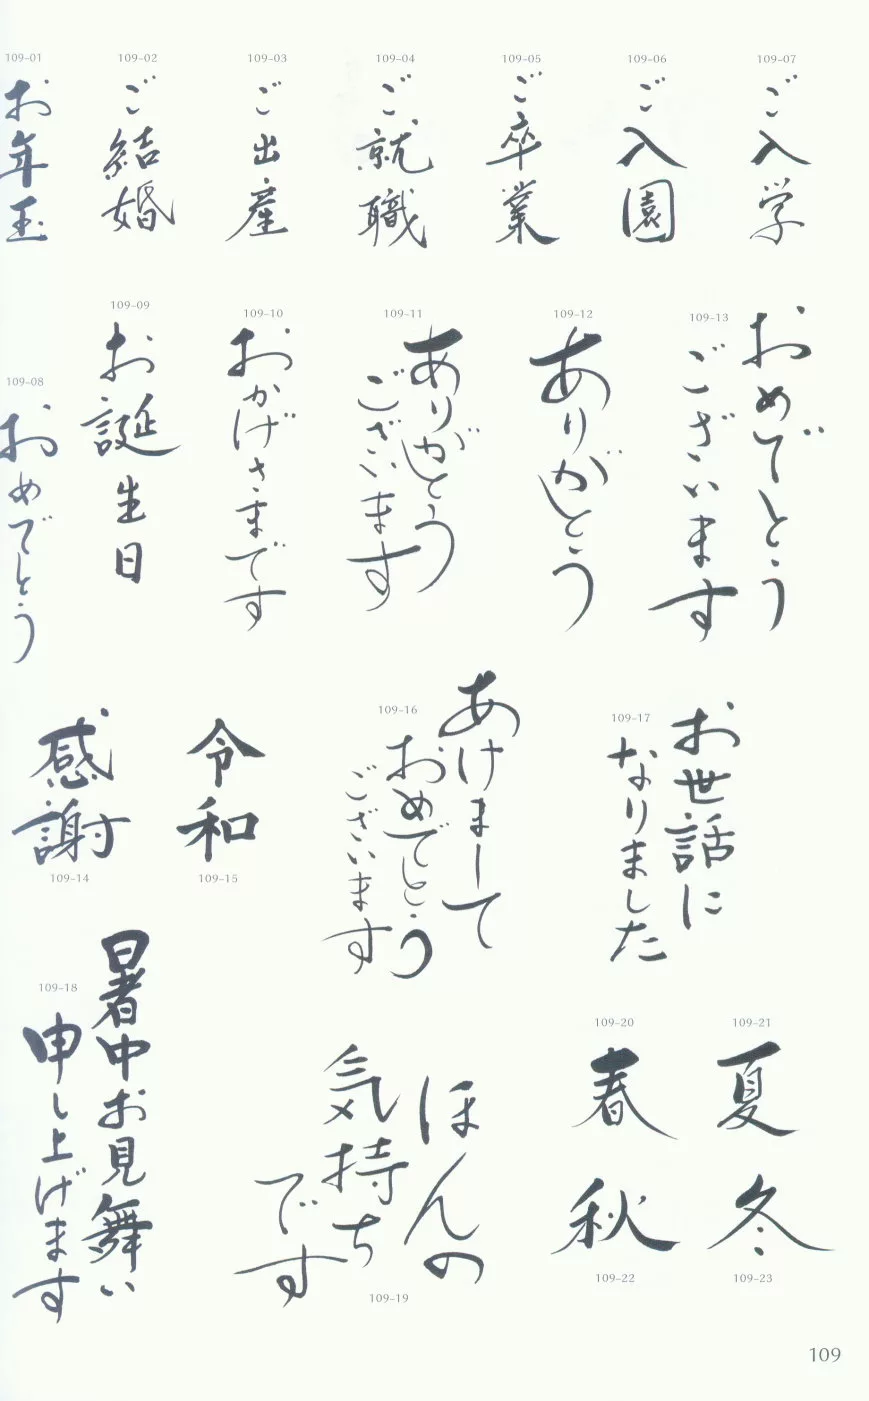 109-01
お年玉
109-02
ご結婚
109-03
ご出産
109-04
ご就職
109-05
ご卒業
109-06
ご入園
109-07
ご入学
109-08
おめでとう
109-09
お誕生日
109-10
おかげさまです
109-11
ありがとう
ございます
109-12
ありがとう
109-13
おめでとう
ございます
感謝
109-14
令和
109-15
109-16
あけまして
おめでとう
ございます
109-17
お世話に
なりました
109-18
暑中お見舞い
申し上げます
ほんの
気持ち
です
109-19
109-20
春
109-21
夏
秋
109-22
冬
109-23
109